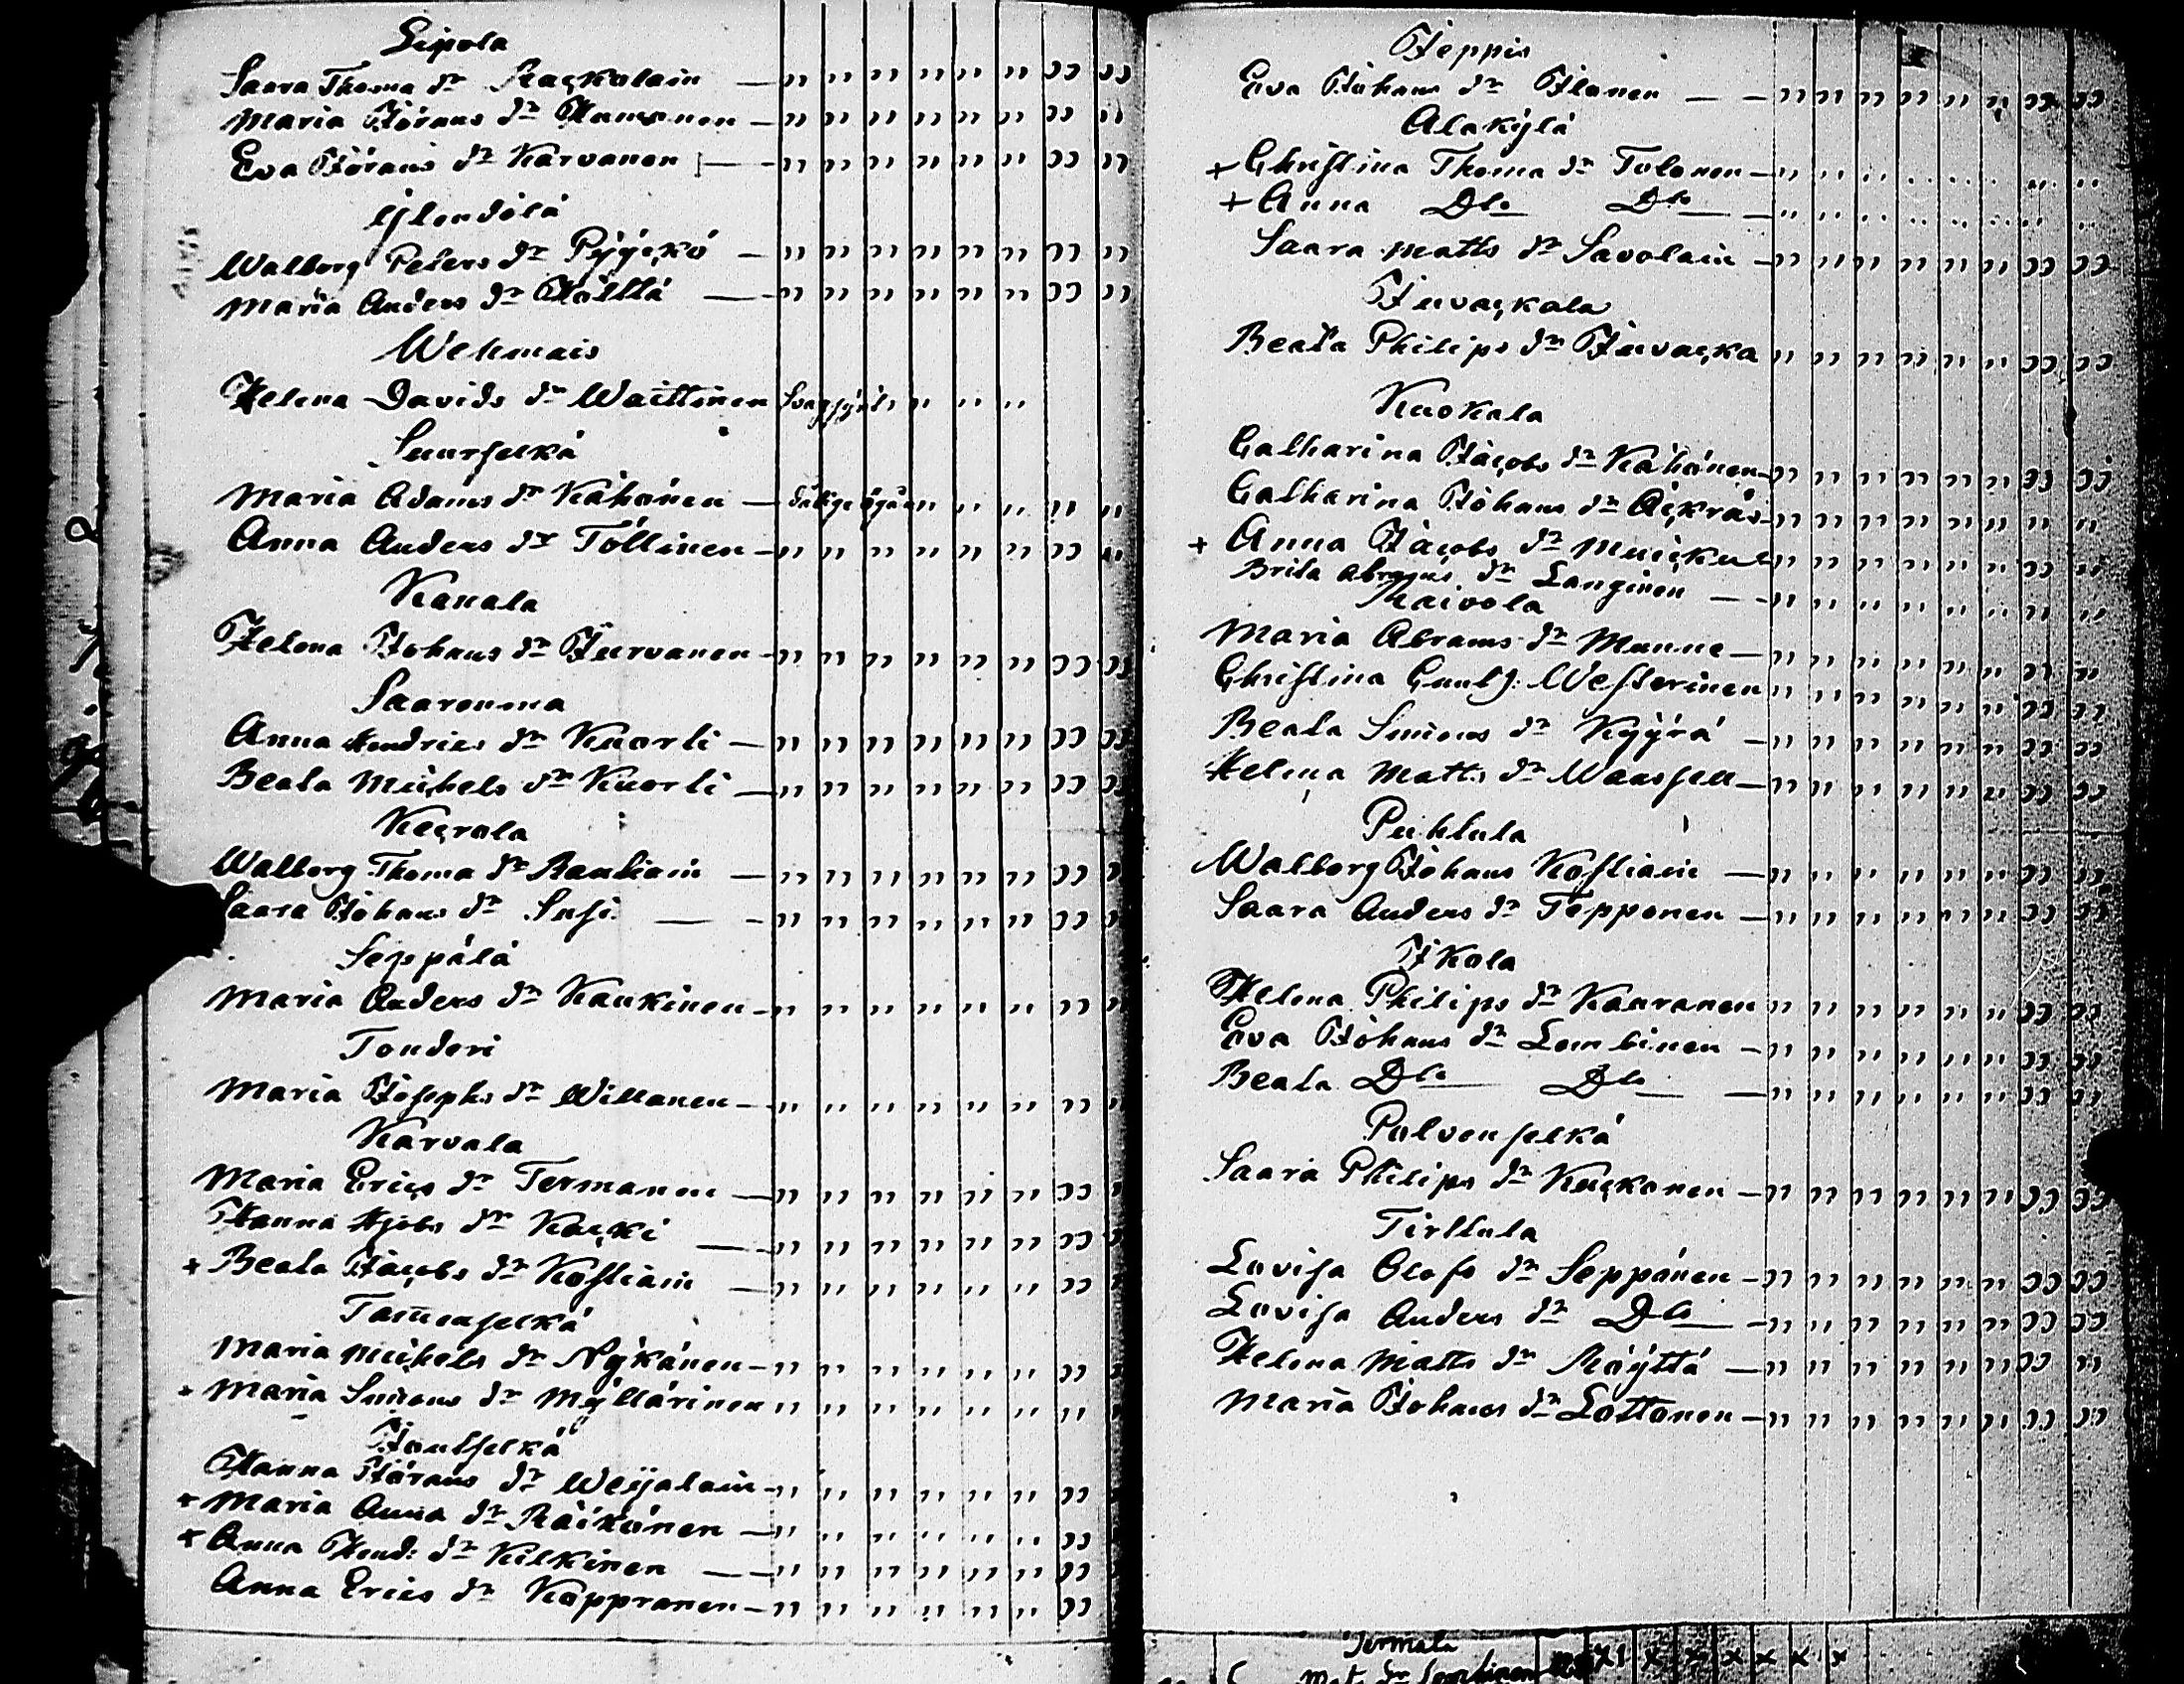 Sipola
Saara Thoma dr Raackolain — " " " " " " " "
Maria Jörans dr Hamonen — " " " " " " " "
Eva Jörans dr Karvanen — " " " " " " " "
Ylendölä
Walborg Peters dr Pyyckö — " " " " " " " "
Maria Anders dr Hölttä — " " " " " " " "
Wehmais
Helena Davids dr Waittinen " " "
Suurselkä
Maria Adams dr Kähönen — " " " " "
Anna Anders dr Töllinen — " " " " " " " "
Kanala
Helena Johans dr Hurvanen — " " " " " " " "
Saarenma
Anna Hendrics dr Kuorti — " " " " " " " "
Beata Michels dr Kuorti — " " " " " " " "
Kecrola
Walborg Thoma dr Rautiain — " " " " " " " "
Saara Johans dr Susi — " " " " " " " "
Seppälä
Maria Anders dr Kaukinen — " " " " " " " "
Tonderi
Maria Josephs dr Willanen — " " " " " " " "
Karvala
Maria Erics dr Termanen — " " " " " " " "
Hanna Hjobs dr Kaecki — " " " " " " " "
+ Beata Jacobs dr Kostiain — " " " " " " " "
Tam̄enselkä
Maria Michels dr Nykänen — " " " " " " " "
+ Maria Simons dr Myllärinen " " " " " " " "
Joutselkä
Hanna Jörans dr Weijalain — " " " " " " "
+ Maria Anna dr Räikönen — " " " " " " "
+ Anna Hend: dr Kilkinen — " " " " " " "
Anna Erics dr Köppronen — " " " " " " "
Jeppis
Eva Johans dr Ilanen — " " " " " " " "
Alakylä
+ Christina Thoma dr Tolonen — " " " " " " " "
+ Anna Dto Dto — " " " " " " " "
Saara Matts dr Savolain — " " " " " " " "
Juvackala
Beata Philips dr Juvacka " " " " " " " "
Kuokala
Catharina Jacobs dr Kähönen — " " " " " " " "
Catharina Johans dr Äckräs — " " " " " " " "
+ Anna Jacobs dr Muickul " " " " " " " "
Brita Abrams dr Langinen — " " " " " " " "
Kaivola
Maria Abrams dr Munne — " " " " " " " "
Christina Gust J: Westerinen " " " " " " " "
Beata Simons dr Kyyrä — " " " " " " " "
Helena Matts dr Waassell — " " " " " " " "
Puhtula
Walborg Johans Kostiain — " " " " " " " "
Saara Anders dr Tepponen — " " " " " " " "
Ikola
Helena Philips dr Kauranen " " " " " " " "
Eva Johans dr Lembinen — " " " " " " " "
Beata Dto Dto — " " " " " " " "
Polvenselkä
Saara Philips dr Kuckonen — " " " " " " " "
Tirttula
Lovisa Olofs dr Seppänen — " " " " " " " "
Lovisa Anders dr Dto — " " " " " " " "
Helena Matts dr Röyttä — " " " " " " " "
Maria Johans dr Lottonen — " " " " " " " "
Termala
Mat. dr Lembinen x1 x x x x x